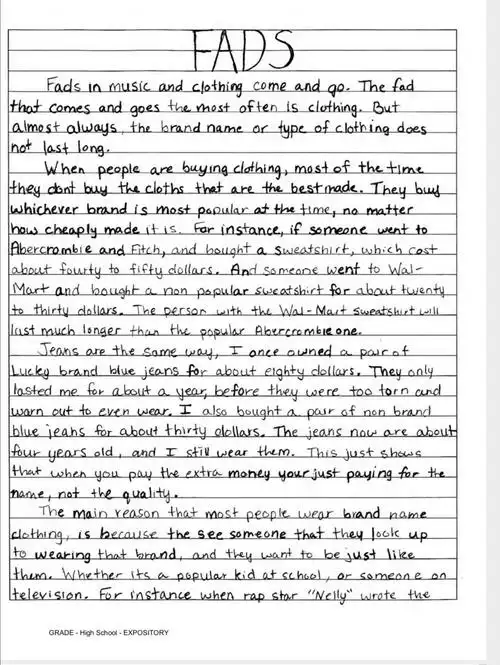 FADS
Fads in music and clothing come and go. The fad
that comes and goes the most often is clothing. But
almost always, the brand name or type of clothing does
not last long.
When people are buying clothing, most of the time
they dont buy the cloths that are the best made. They buy
whichever brand is most popular at the time, no matter
how cheaply made it is. For instance, if someone went to
Abercrombie and Fitch, and bought a sweatshirt, which cost
about fourty to fifty dollars. And someone went to Wal-
Mart and bought a non popular sweatshirt for about twenty
to thirty dollars. The person with the Wal-Mart sweatshirt will
last much longer than the popular Abercrombie one.
Jeans are the same way, I once owned a pair of
Lucky brand blue jeans for about eighty dollars. They only
lasted me for about a year, before they were too torn and
warn out to even wear. I also bought a pair of non brand
blue jeans for about thirty dollars. The jeans now are about
four years old, and I still wear them. This just shows
that when you pay the extra money your just paying for the
name, not the quality.
The main reason that most people wear brand name
clothing, is because the see someone that they look up
to wearing that brand, and they want to be just like
them. Whether its a popular kid at school, or someone on
television. For instance when rap star "Nelly" wrote the
GRADE - High School - EXPOSITORY